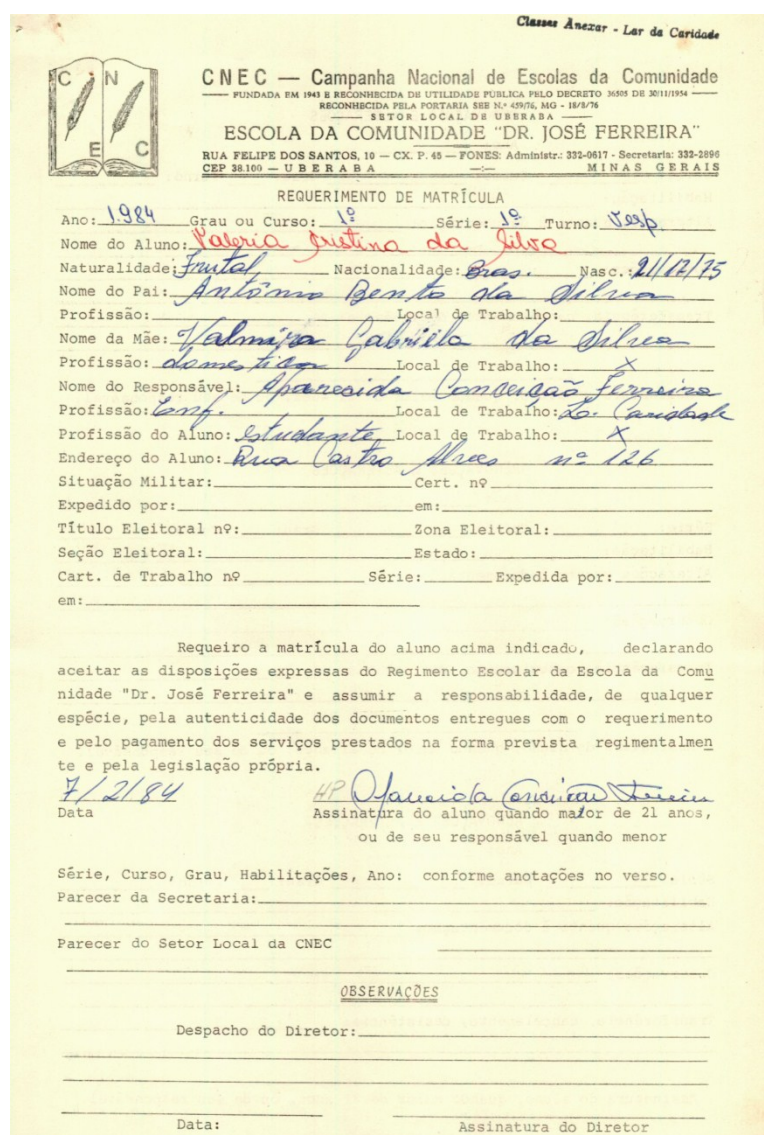 Classes Anexar - Lar da Caridade
C N E C
CNEC — Campanha Nacional de Escolas da Comunidade
FUNDADA EM 1943 E RECONHECIDA DE UTILIDADE PUBLICA PELO DECRETO 36505 DE 30/11/1954
RECONHECIDA PELA PORTARIA SEE N.º 459/76, MG - 18/8/76
SETOR LOCAL DE UBERABA
ESCOLA DA COMUNIDADE "DR. JOSÉ FERREIRA"
RUA FELIPE DOS SANTOS, 10 — CX. P. 45 — FONES: Administr.: 332-0617 - Secretaria: 332-2896
CEP 38.100 — UBERABA —:— MINAS GERAIS
REQUERIMENTO DE MATRÍCULA
Ano: 1.984 Grau ou Curso: 1º Série: 1ª Turno: Vesp
Nome do Aluno: Valeria Cristina da Silva
Naturalidade: Frutal Nacionalidade: Bras. Nasc.: 21/12/75
Nome do Pai: Antônio Bento da Silva
Profissão: Local de Trabalho:
Nome da Mãe: Valmira Gabriela da Silva
Profissão: domestica Local de Trabalho: X
Nome do Responsável: Aparecida Conceição Ferreira
Profissão: Enf. Local de Trabalho: L. Caridade
Profissão do Aluno: estudante Local de Trabalho: X
Endereço do Aluno: Rua Castro Alves nº 126
Situação Militar: Cert. nº
Expedido por: em:
Título Eleitoral nº: Zona Eleitoral:
Seção Eleitoral: Estado:
Cart. de Trabalho nº Série: Expedida por:
em:
Requeiro a matrícula do aluno acima indicado, declarando
aceitar as disposições expressas do Regimento Escolar da Escola da Comu
nidade "Dr. José Ferreira" e assumir a responsabilidade, de qualquer
espécie, pela autenticidade dos documentos entregues com o requerimento
e pelo pagamento dos serviços prestados na forma prevista regimentalmen
te e pela legislação própria.
7/2/84 HP Aparecida Conceição Ferreira
Data Assinatura do aluno quando maior de 21 anos,
ou de seu responsável quando menor
Série, Curso, Grau, Habilitações, Ano: conforme anotações no verso.
Parecer da Secretaria:
Parecer do Setor Local da CNEC
OBSERVAÇÕES
Despacho do Diretor:
Data: Assinatura do Diretor